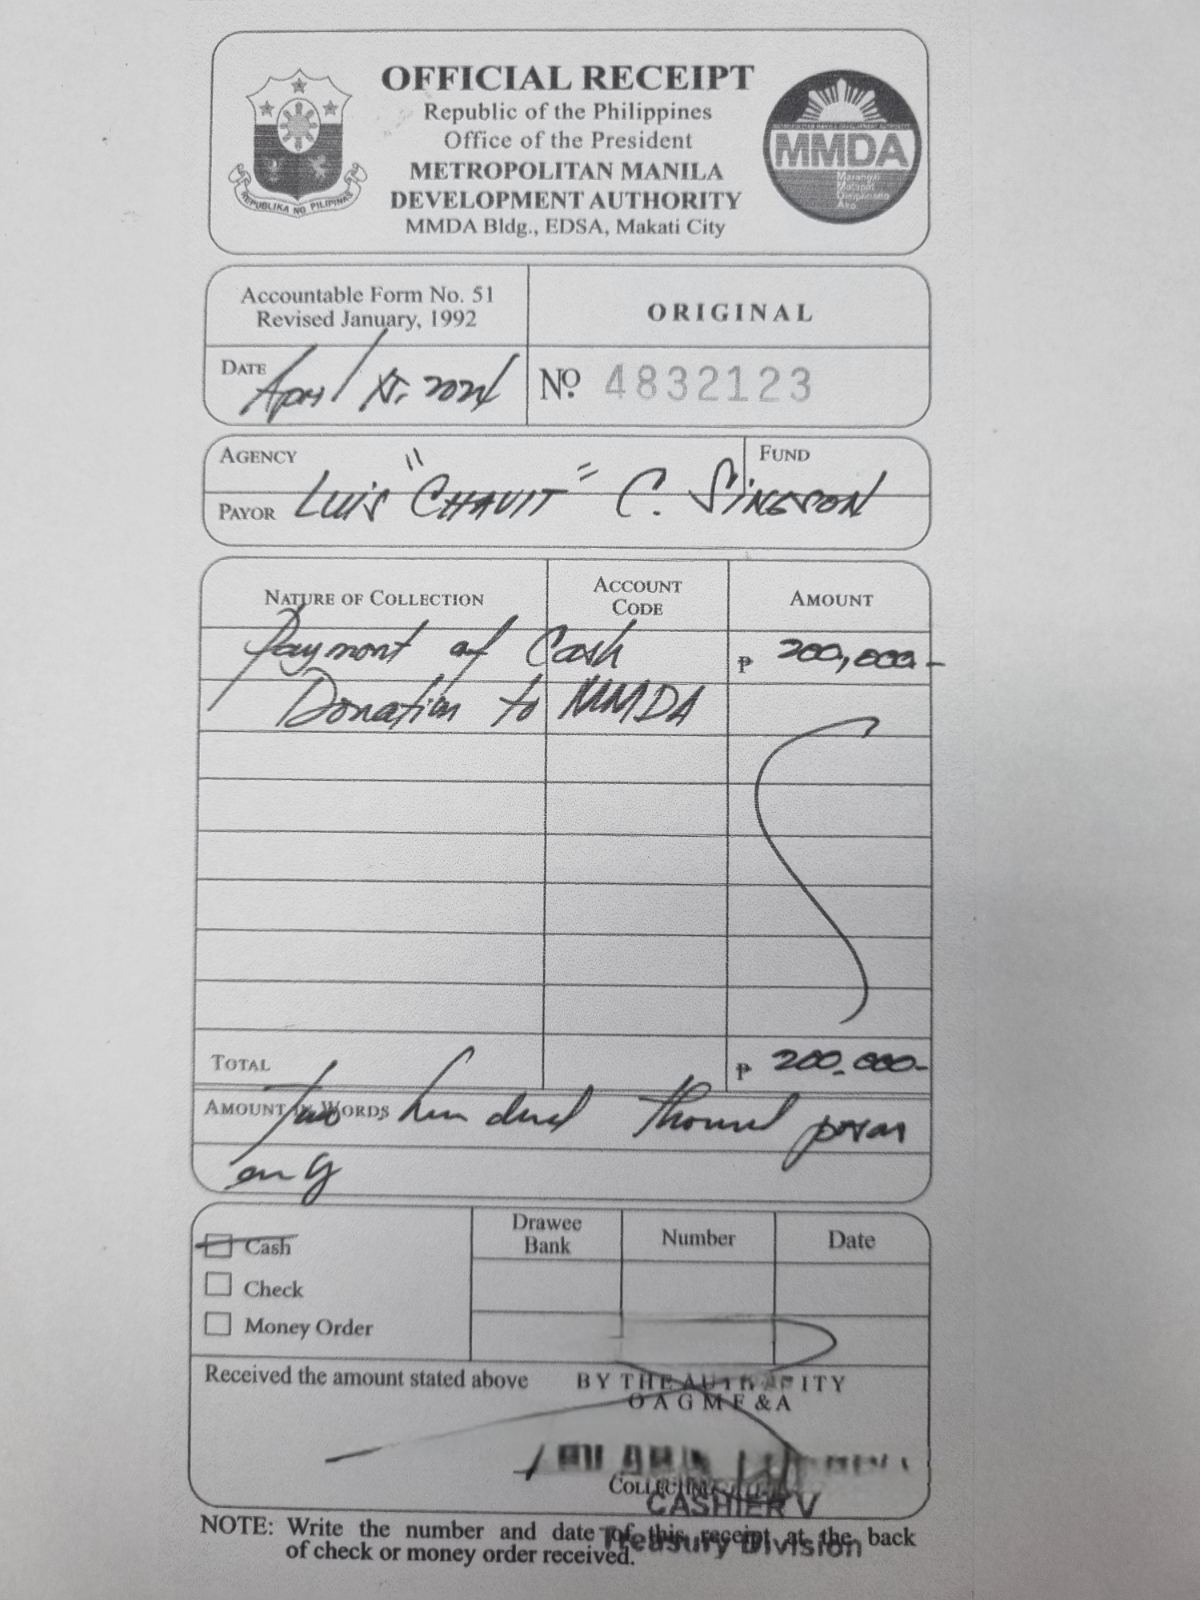 OFFICIAL RECEIPT
Republic of the Philippines
Office of the President
METROPOLITAN MANILA
DEVELOPMENT AUTHORITY
MMDA Bldg., EDSA, Makati City
REPUBLIKA NG PILIPINAS
MMDA
Marangal
Matapat
Disiplinado
Ako
Accountable Form No. 51
Revised January, 1992
ORIGINAL
DATE April 15, 2024
Nº 4832123
AGENCY
FUND
PAYOR LUIS "CHAVIT" C. SINGSON
NATURE OF COLLECTION ACCOUNT CODE AMOUNT
Payment of Cash ₱ 200,000-
Donation to MMDA
TOTAL ₱ 200,000-
AMOUNT IN WORDS two hundred thousand pesos
only
Cash
Check
Money Order
Drawee Bank Number Date
Received the amount stated above
BY THE AUTHORITY
OAGMF&A
CASHIER V
Treasury Division
NOTE: Write the number and date of this receipt at the back
of check or money order received.